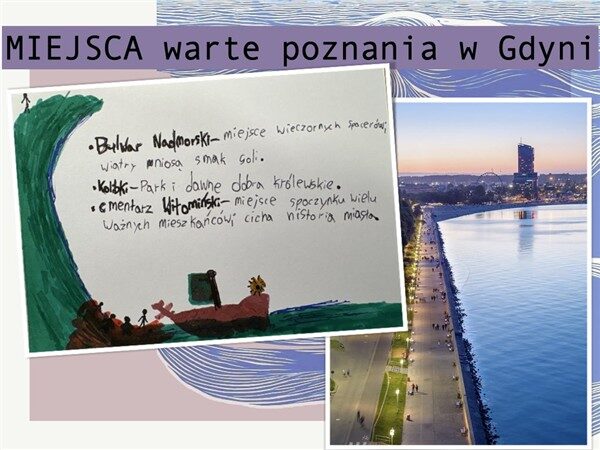 MIEJSCA warte poznania w Gdyni
• Bulwar Nadmorski – miejsce wieczornych spacerów,
wiatry wniosą smak soli.
• Kolibki – Park i dawne dobra królewskie.
• cmentarz Witomiński – miejsce spoczynku wielu
ważnych mieszkańców, cicha historia miasta.